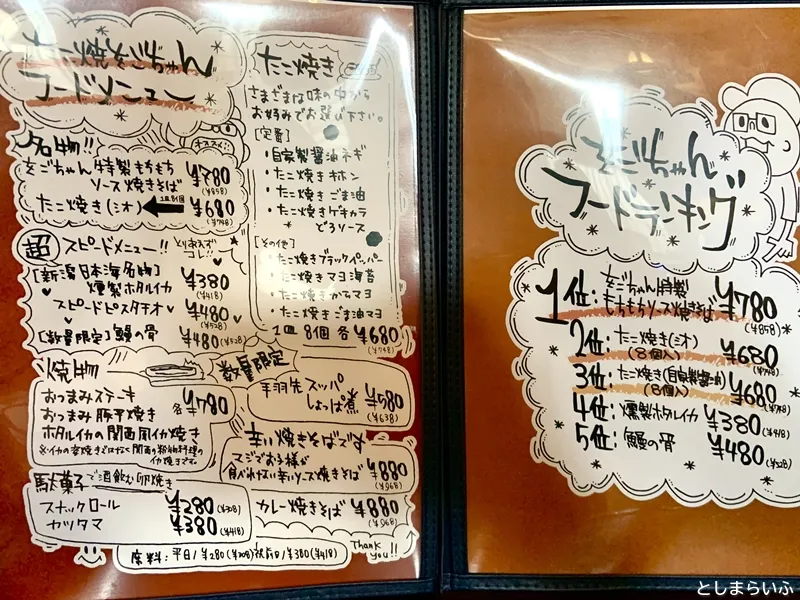 たこ焼きをごぢゃん
フードメニュー
名物!!
オススメ
をごちゃん特製もちもち
ソース焼きそば ¥780
(¥858)
たこ焼き(シオ) 1皿8個 ¥680
(¥748)
超スピードメニュー!! とりあえずコレ!!
[新潟日本海名物]
燻製ホタルイカ ¥380
(¥418)
スピードピスタチオ ¥480
(¥528)
[数量限定]鰻の骨 ¥480(¥528)
焼物
おつまみステーキ
おつまみ豚平焼き 各¥780
ホタルイカの関西風イカ焼き
※イカの姿焼きではなく関西の粉物料理の
イカ焼きです。
駄菓子で酒飲む卵焼き
スナックロール ¥280(¥308)
カツタマ ¥380(¥418)
たこ焼き
さまざまな味の中から
お好みでお選び下さい。
[定番]
・自家製醤油ネギ
・たこ焼きキホン
・たこ焼きごま油
・たこ焼きゲキカラ
どろソース
[その他]
・たこ焼きブラックペッパー
・たこ焼きマヨ海苔
・たこ焼きからマヨ
・たこ焼きごま油マヨ
1皿8個 各¥680
(¥748)
数量限定
手羽先スッパ
しょっぱ煮 ¥580
(¥638)
辛い焼きそばズ
マジでお子様が
食べれない辛いソース焼きそば ¥880
(¥968)
カレー焼きそば ¥880
(¥968)
席料:平日/¥280(¥308)祝前日/¥380(¥418)
Thank you!!
をごぢゃん
フードランキング
1位:をごちゃん特製
もちもちソース焼きそば ¥780
(¥858)
2位:たこ焼き(シオ)
(8個入) ¥680
(¥748)
3位:たこ焼き(自家製醤油)
(8個入) ¥680
(¥748)
4位:燻製ホタルイカ ¥380(¥418)
5位:鰻の骨 ¥480(¥528)
としまらいふ